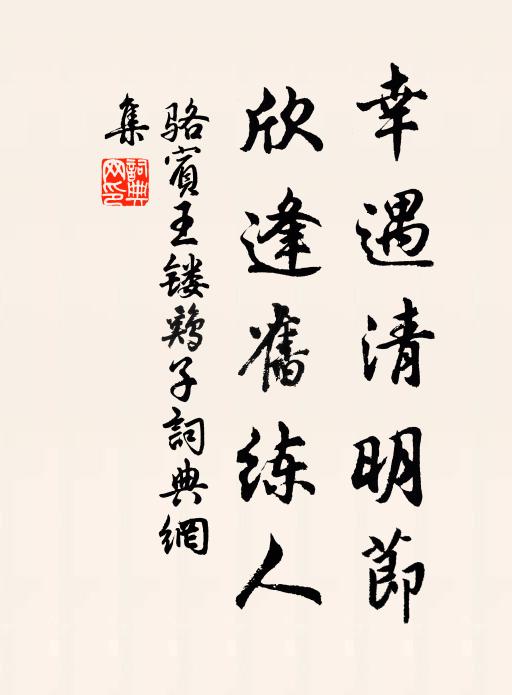 幸遇清明節
欣逢舊练人
骆賓王镂鷄子詞典網
集
詞典網印